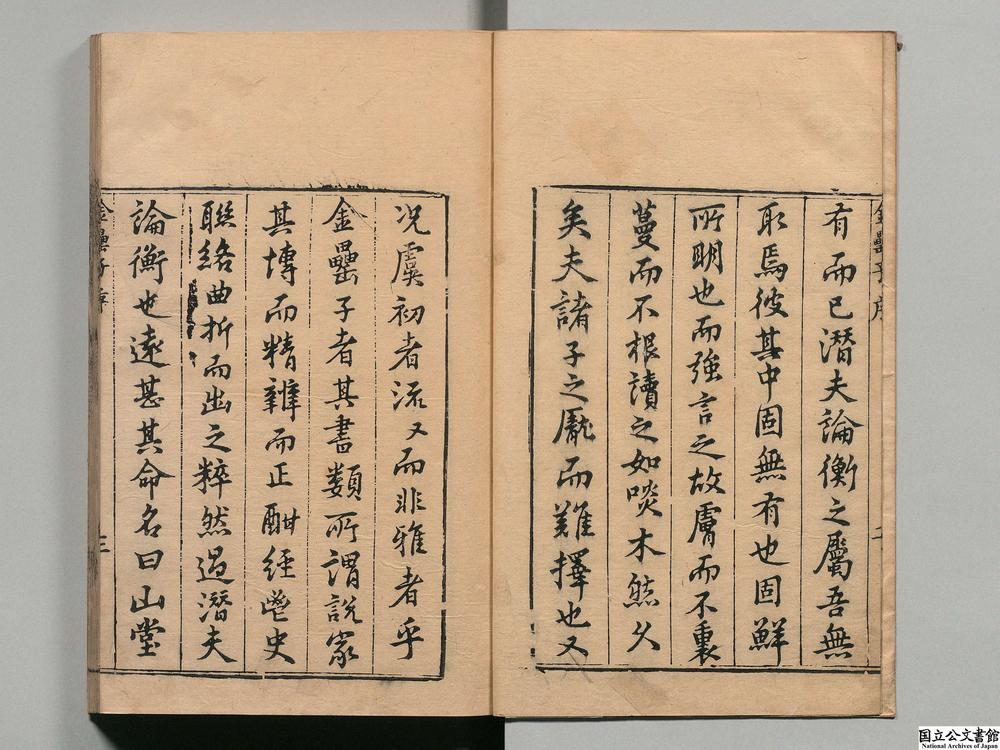 有而已潛夫論衡之屬吾無
取焉彼其中固無有也固鮮
所明也而強言之故膚而不裏
蔓而不根讀之如啖木然久
矣夫諸子之厖而難擇也又
況虞初者流又而非雅者乎
金罍子者其書類所謂說家
其博而精辯而正酣經鬯史
聯絡曲折而出之粹然過潛夫
論衡也遠甚其命名曰山堂
金罍子序
二
金罍子序
三
国立公文書館
National Archives of Japan